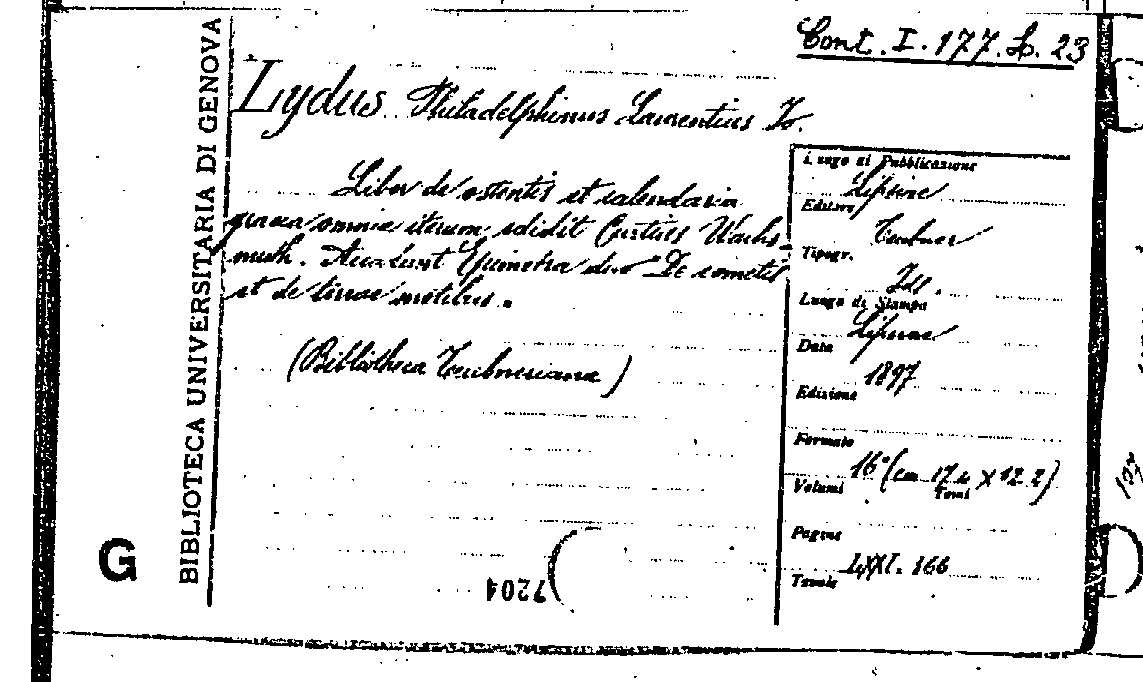 Cont. I. 177. L. 23
BIBLIOTECA UNIVERSITARIA DI GENOVA
Lydus Philadelphinus Laurentius Io.
Liber de ostentis et calendaria
graeca omnia iterum edidit Curtius Wachs-
muth. Accedunt Epimetra duo De cometis
et de terrae motibus.
(Bibliotheca Teubneriana)
Luogo di Pubblicazione
Lipsiae
Editore
Teubner
Tipogr.
Id.
Luogo di Stampa
Lipsiae
Data
1897
Edizione
Formato
16° (cm 17
X 12.2)
Volumi
Tomi
Pagine
LXXI. 166
Tavole
G
7204